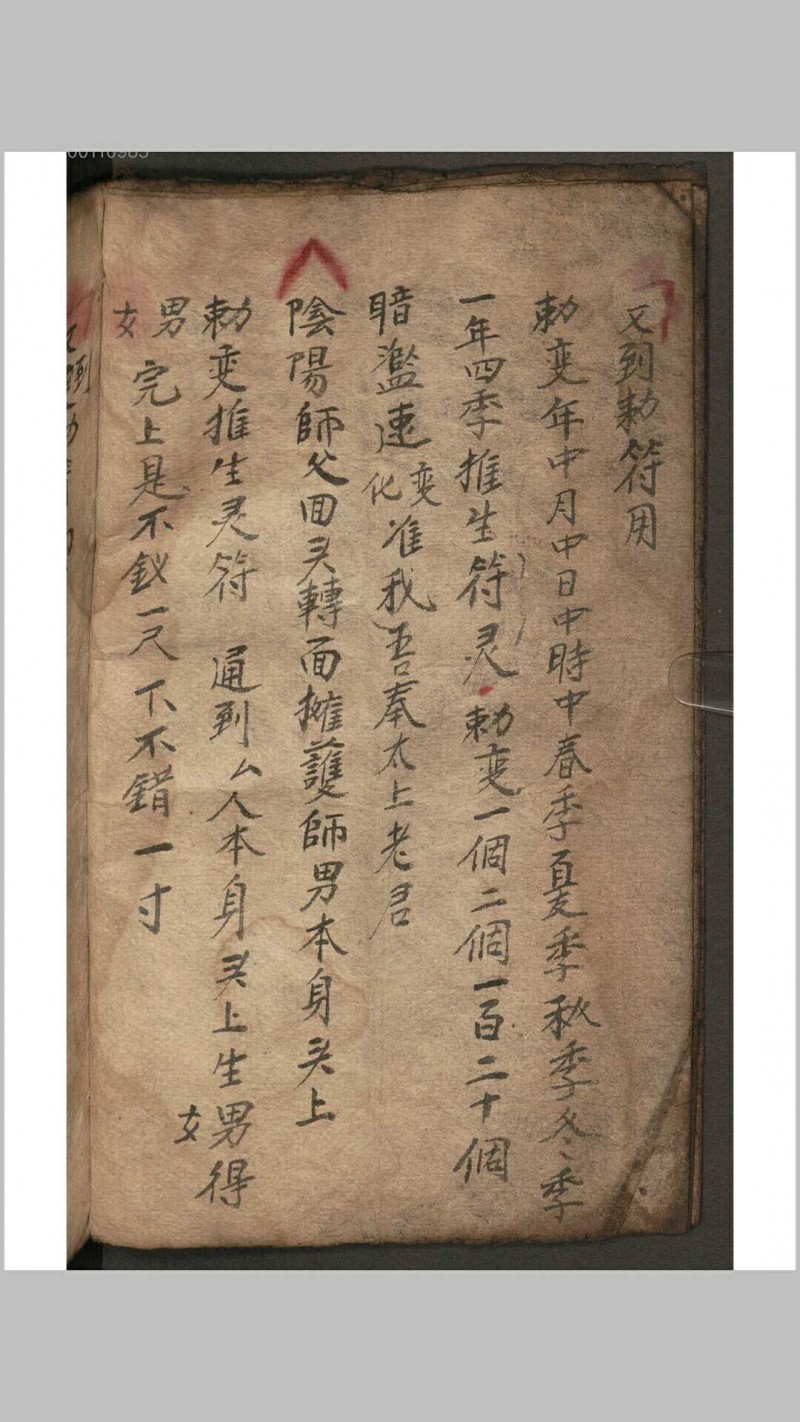 又到勅符用
勅变年中月中日中時中春季夏季秋季冬季
一年四季推生符灵勅变一個二個一百二十個
暗濫速变化准我吾奉太上老君
陰陽師父回头轉面擁護師男本身头上
勅变推生灵符 通到厶人本身头上生男女得
男女完上是不釵一尺下不錯一寸